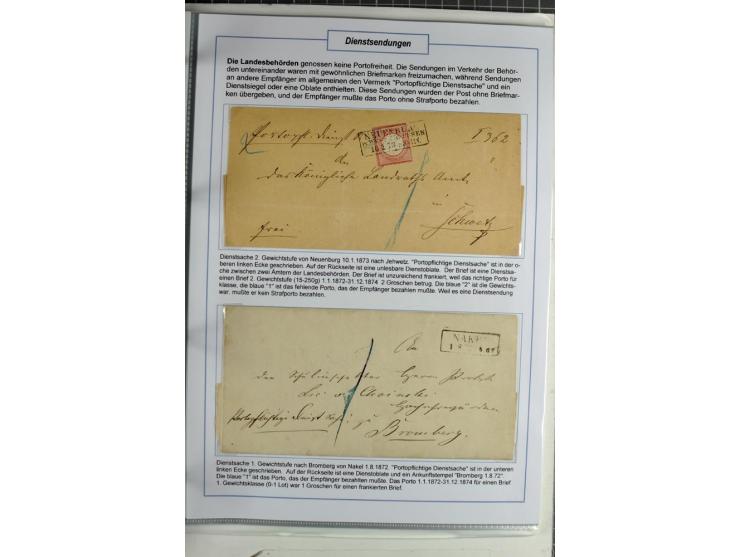 Dienstsendungen
Die Landesbehörden genossen keine Portofreiheit. Die Sendungen im Verkehr der Behör-
den untereinander waren mit gewöhnlichen Briefmarken freizumachen, während Sendungen
an andere Empfänger im allgemeinen den Vermerk "Portopflichtige Dienstsache" und ein
Dienstsiegel oder eine Oblate enthielten. Diese Sendungen wurden der Post ohne Briefmar-
ken übergeben, und der Empfänger mußte das Porto ohne Strafporto bezahlen.
Portopfl. Dienst
an
das Königliche Landraths Amt
in
frei
Dienstsache 2. Gewichtstufe von Neuenburg 10.1.1873 nach Jehwetz. "Portopflichtige Dienstsache" ist in der o-
beren linken Ecke geschrieben. Auf der Rückseite ist eine unlesbare Dienstoblate. Der Brief ist eine Dienstsa-
che zwischen zwei Ämtern der Landesbehörden. Der Brief ist unzureichend frankiert, weil das richtige Porto für
einen Brief 2. Gewichtstufe (15-250g) 1.1.1872-31.12.1874 2 Groschen betrug. Die blaue "2" ist die Gewichts-
klasse, die blaue "1" ist das fehlende Porto, das der Empfänger bezahlen mußte. Weil es eine Dienstsendung
war, mußte er kein Strafporto bezahlen.
NAKEL
An
den Schulinspektor Herrn
Portopflichtige Dienst Sache zu
Bromberg.
Dienstsache 1. Gewichtstufe nach Bromberg von Nakel 1.8.1872. "Portopflichtige Dienstsache" ist in der unteren
linken Ecke geschrieben. Auf der Rückseite ist eine Dienstoblate und ein Ankunftstempel "Bromberg 1.8.72".
Die blaue "1" ist das Porto, das der Empfänger bezahlen mußten. Das Porto 1.1.1872-31.12.1874 für einen Brief
1. Gewichtsklasse (0-1 Lot) war 1 Groschen für einen frankierten Brief.